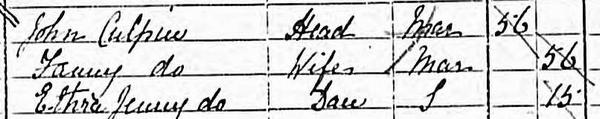 John Culpin Head Mar 56
Fanny do Wife Mar 56
Ethra Jenny do Dau S 15